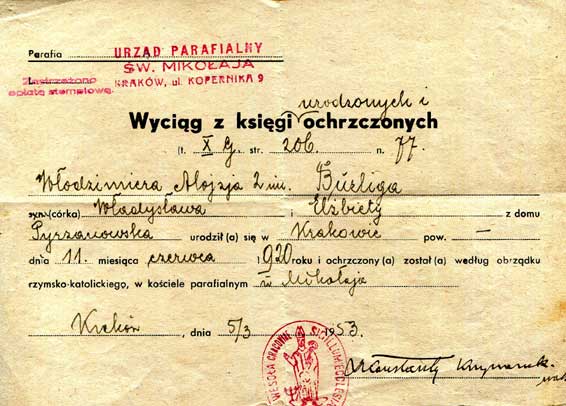 Parafia URZĄD PARAFIALNY
ŚW. MIKOŁAJA
Zastrzeżono KRAKÓW, ul. KOPERNIKA 9
opłatę stemplową.
urodzonych i
Wyciąg z księgi ochrzczonych
(t. X G. str. 206. n. 77.
Włodzimierz Alojzja 2 im. Burliga
syn(córka) Władysława i Elżbiety z domu
Pyrzanowska urodził(a) się w Krakowie pow. —
dnia 11. miesiąca czerwca 1920 roku i ochrzczony(a) został(a) według obrządku
rzymsko-katolickiego, w kościele parafialnym św Mikołaja
Kraków, dnia 5/3 1953.
WESOŁA CRACOVIAE SIGILLUM ECCLESIAE
Konstanty